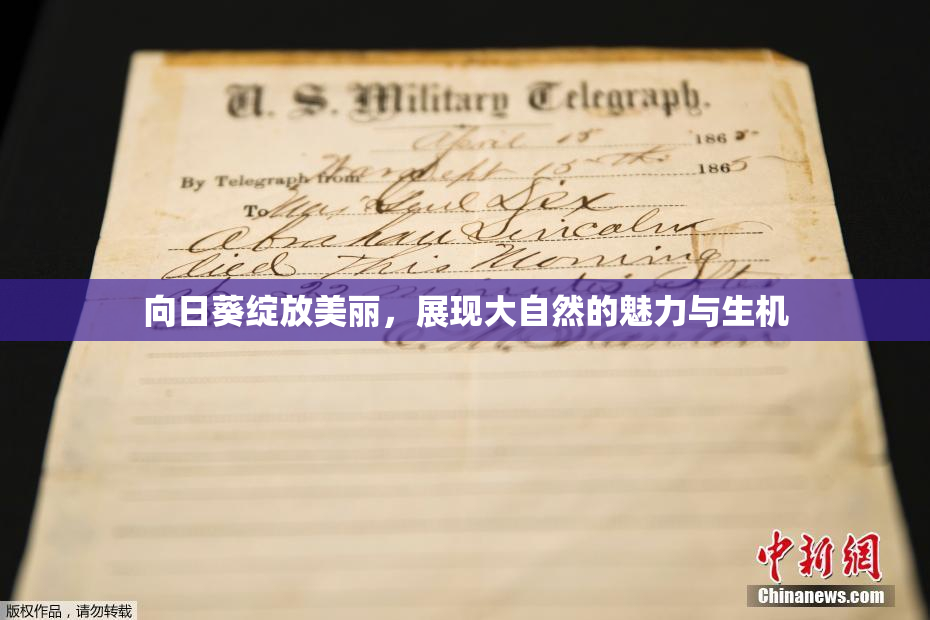 U. S. Military Telegraph.
April 15 1865
By Telegraph from War Dept 15th 1865
To Maj Genl Dix
Abraham Lincoln
died This Morning
22 minutes after
向日葵绽放美丽，展现大自然的魅力与生机
中新網
Chinanews.com
版权作品，请勿转载